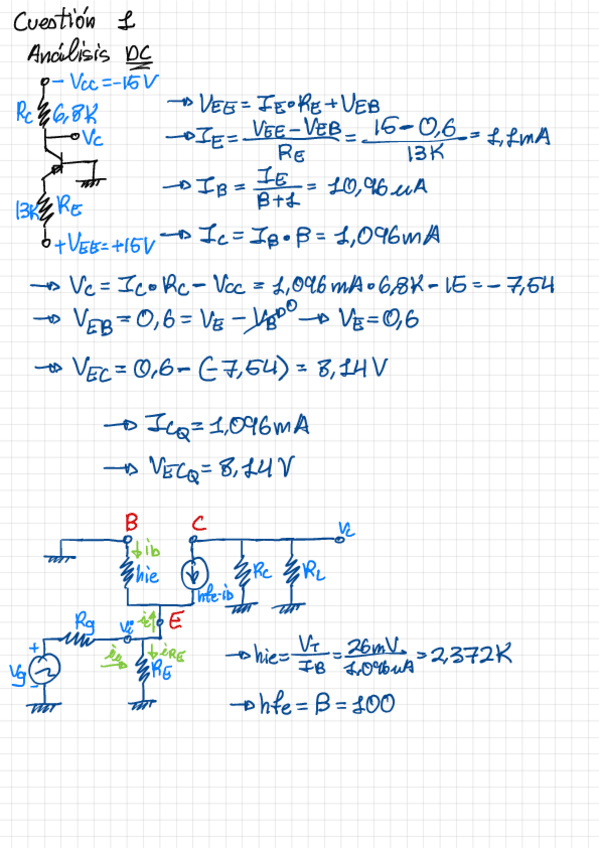 Cuestión 1
Análisis DC
-Vcc=-15V
Rc 6,8K
Vc
13K RE
+VEE=+15V
→ VEE = IE•RE+VEB
→ IE = VEE-VEB / RE = 15-0,6 / 13K = 1,1mA
→ IB = IE / β+1 = 10,96 uA
→ Ic = IB•β = 1,096mA
→ Vc = Ic•Rc-Vcc = 1,096mA•6,8K-15 = -7,54
→ VEB = 0,6 = VE - VB 0 → VE = 0,6
→ VEC = 0,6-(-7,54) = 8,14V
→ ICQ = 1,096mA
→ VECQ = 8,14V
B C
ib
hie hfe·ib Rc RL
Rg Vi E
Vg RE iRE
→ hie = VT / IB = 26mV / 1,096uA = 2,372K
→ hfe = β = 100